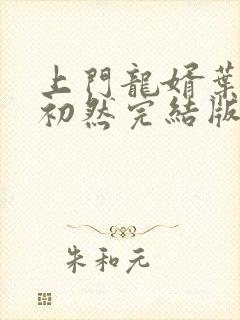 上門龍婿葉
初然完結版
朱和元